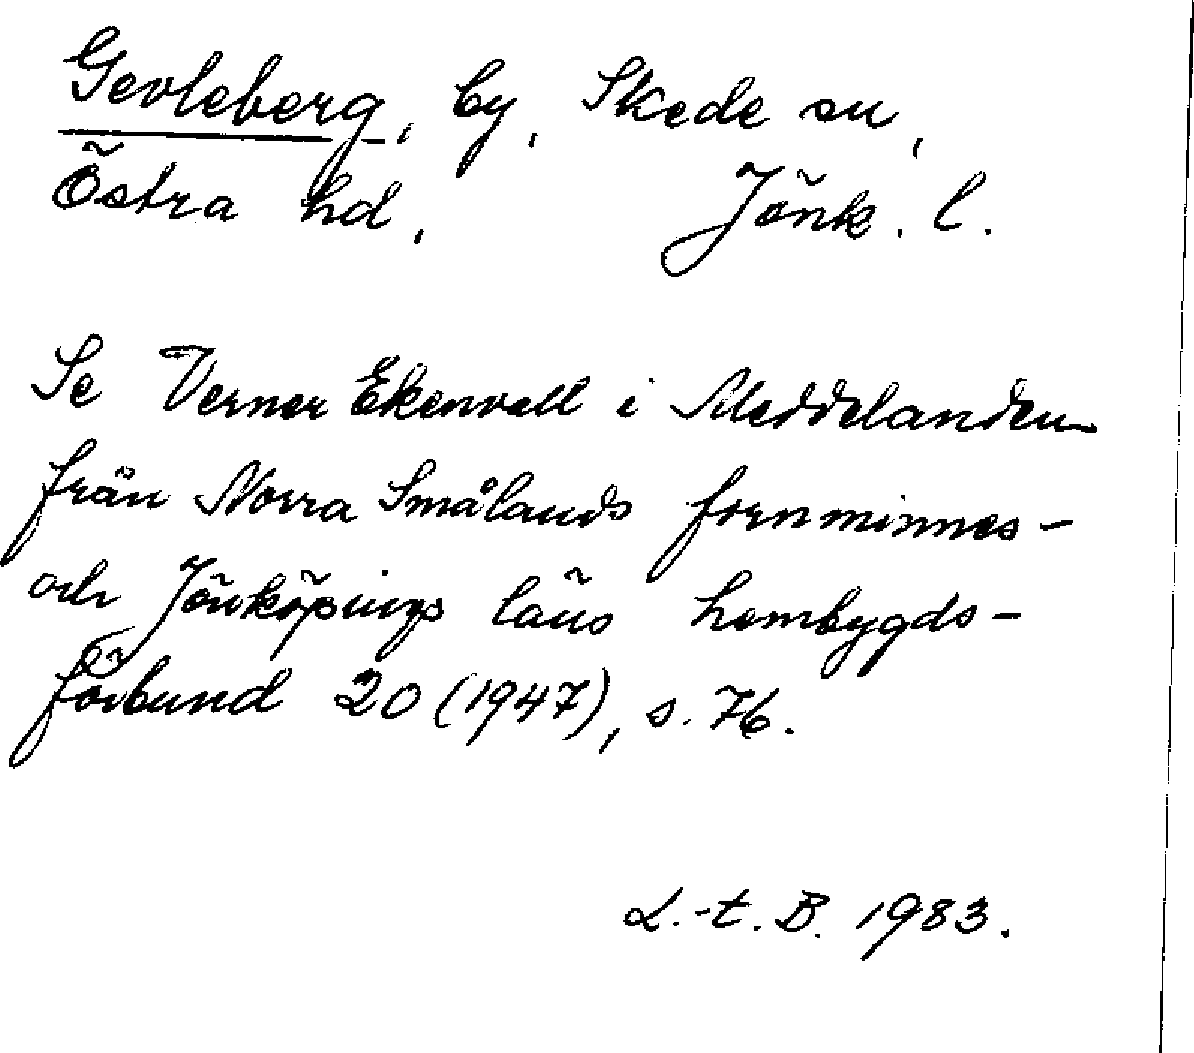 Gevleberg, by, Skede sn,
Östra hd, Jönk. l.
Se Verner Ekenvall i Meddelanden
från Norra Smålands fornminnes-
och Jönköpings läns hembygds-
förbund 20 (1947), s. 76.
L.-t. B. 1983.